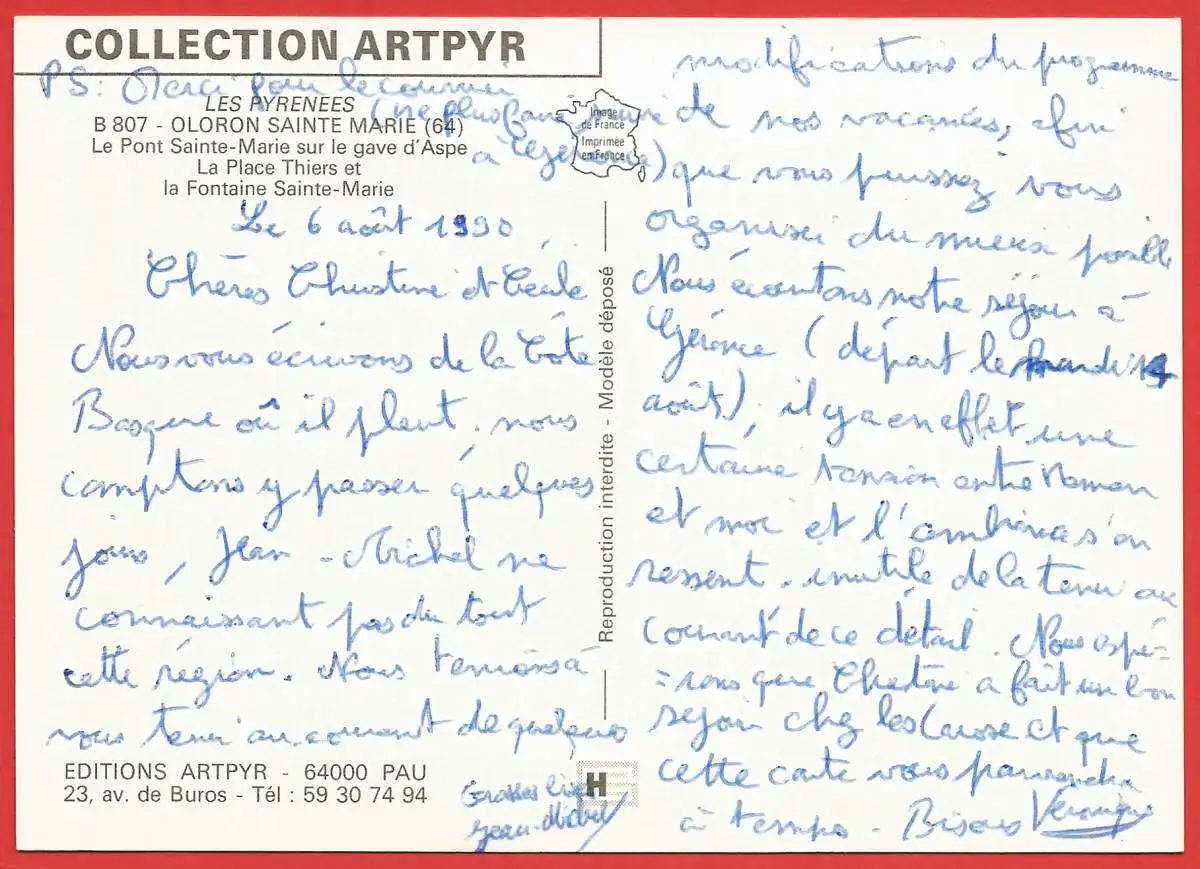 COLLECTION ARTPYR
PS: Merci pour le courrier
(ne plus faire suivre
à Géronce)
LES PYRENEES
B 807 - OLORON SAINTE MARIE (64)
Le Pont Sainte-Marie sur le gave d'Aspe
La Place Thiers et
la Fontaine Sainte-Marie
Image
de France
Imprimée
en France
Le 6 août 1990,
Chères Christine et Cécile
Nous vous écrivons de la Côte
Basque où il pleut. nous
comptons y passer quelques
jours, Jean-Michel ne
connaissant pas du tout
cette région. Nous tenions à
vous tenir au courant de quelques
modifications du programme
de nos vacances, afin
que vous puissiez vous
organiser du mieux possible
Nous écourtons notre séjour à
Géronce (départ le mardi 14
août), il y a en effet une
certaine tension entre Maman
et moi et l'ambiance s'en
ressent. inutile de la tenir au
courant de ce détail. Nous espé=
=rons que Christine a fait un bon
séjour chez les et que
cette carte vous parviendra
à temps. Bisous Véronique
Grosses bises
Jean-Michel
Reproduction interdite - Modèle déposé
EDITIONS ARTPYR - 64000 PAU
23, av. de Buros - Tél : 59 30 74 94
H